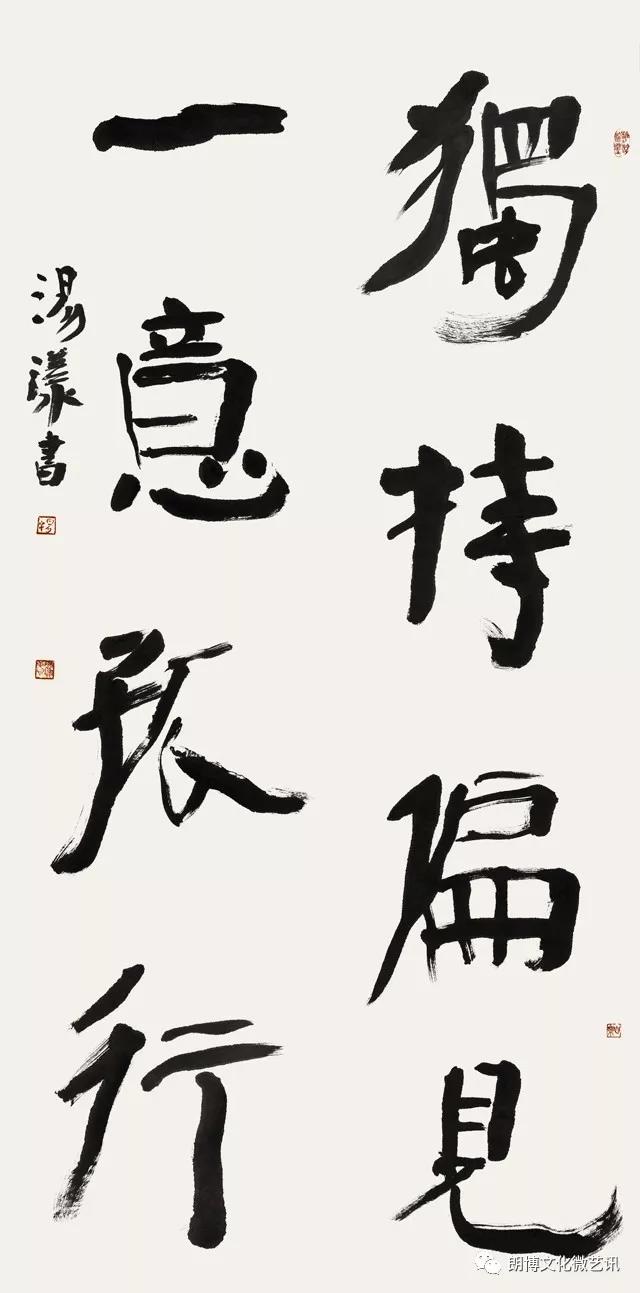 獨持偏見
一意孤行
湯漾書
朗博文化微艺讯